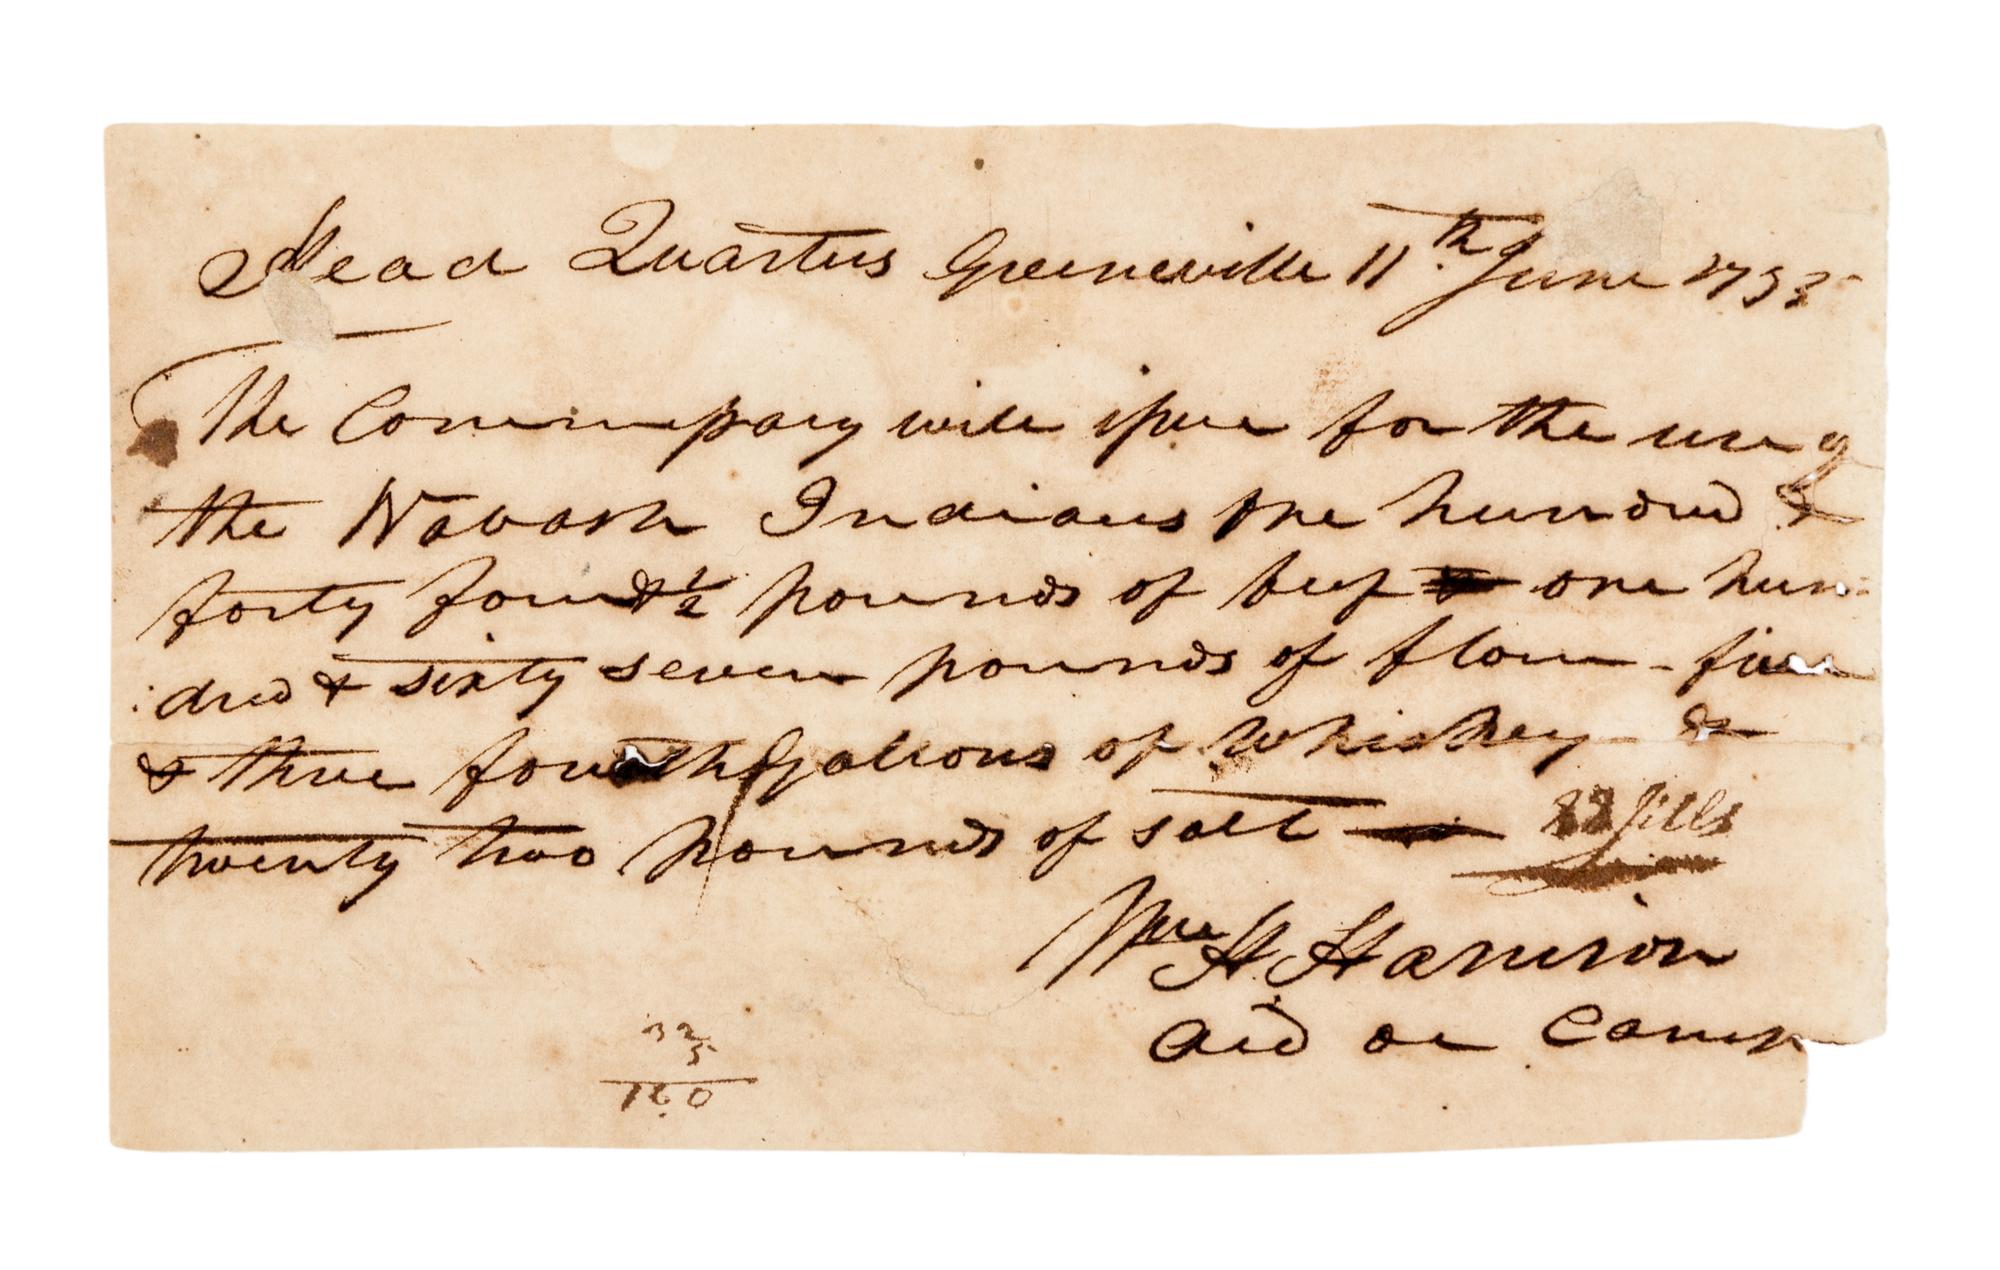 Head Quarters Greeneville 11th June 1795
The Commpany will issue for the use of
the Wabash Indians one hundred &
forty four & 1/2 pounds of beef one hun
dred & sixty seven pounds of flour - five
& three fourth gallons of Whiskey &
twenty two pounds of salt
22 Jills
Wm H. Harrison
Aid de Camp
32
5
160